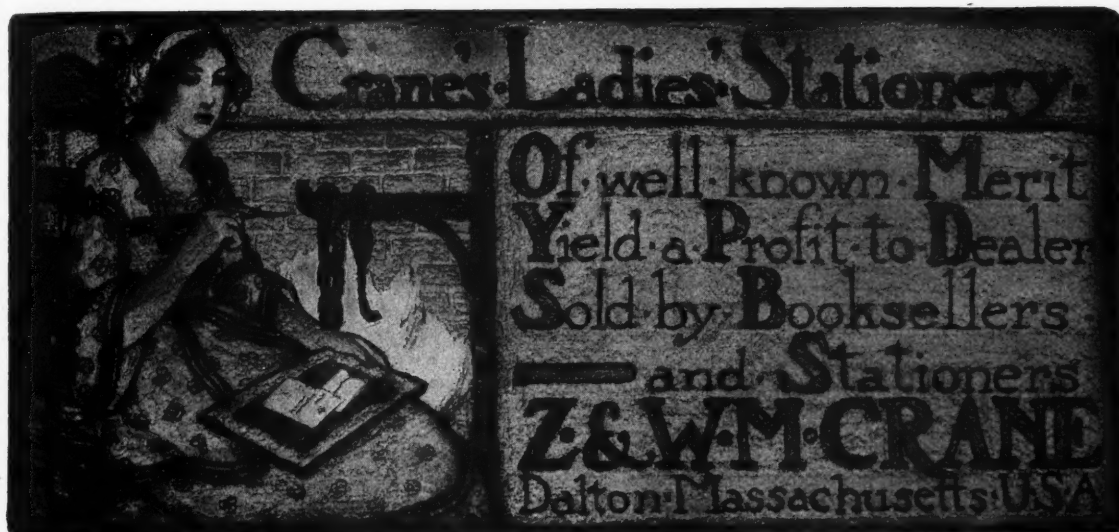 Crane's·Ladies'·Stationery·
Of·well·known·Merit
Yield·a·Profit·to·Dealer
Sold·by·Booksellers
— and·Stationers
Z·&·W·M·CRANE
Dalton·Massachusetts·U·S·A